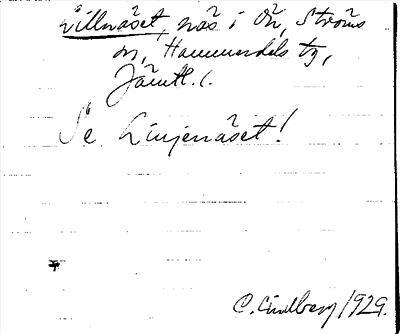 Lillnäset, näs i ön, Ströms
sn, Hammerdals tg,
Jämtl. l.
Se Linjenäset!
C. Lindberg 1929.